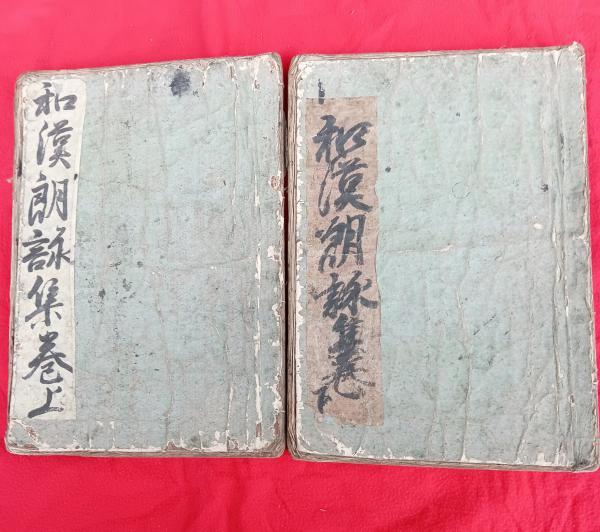 和漢朗詠集巻上
和漢朗詠集巻下